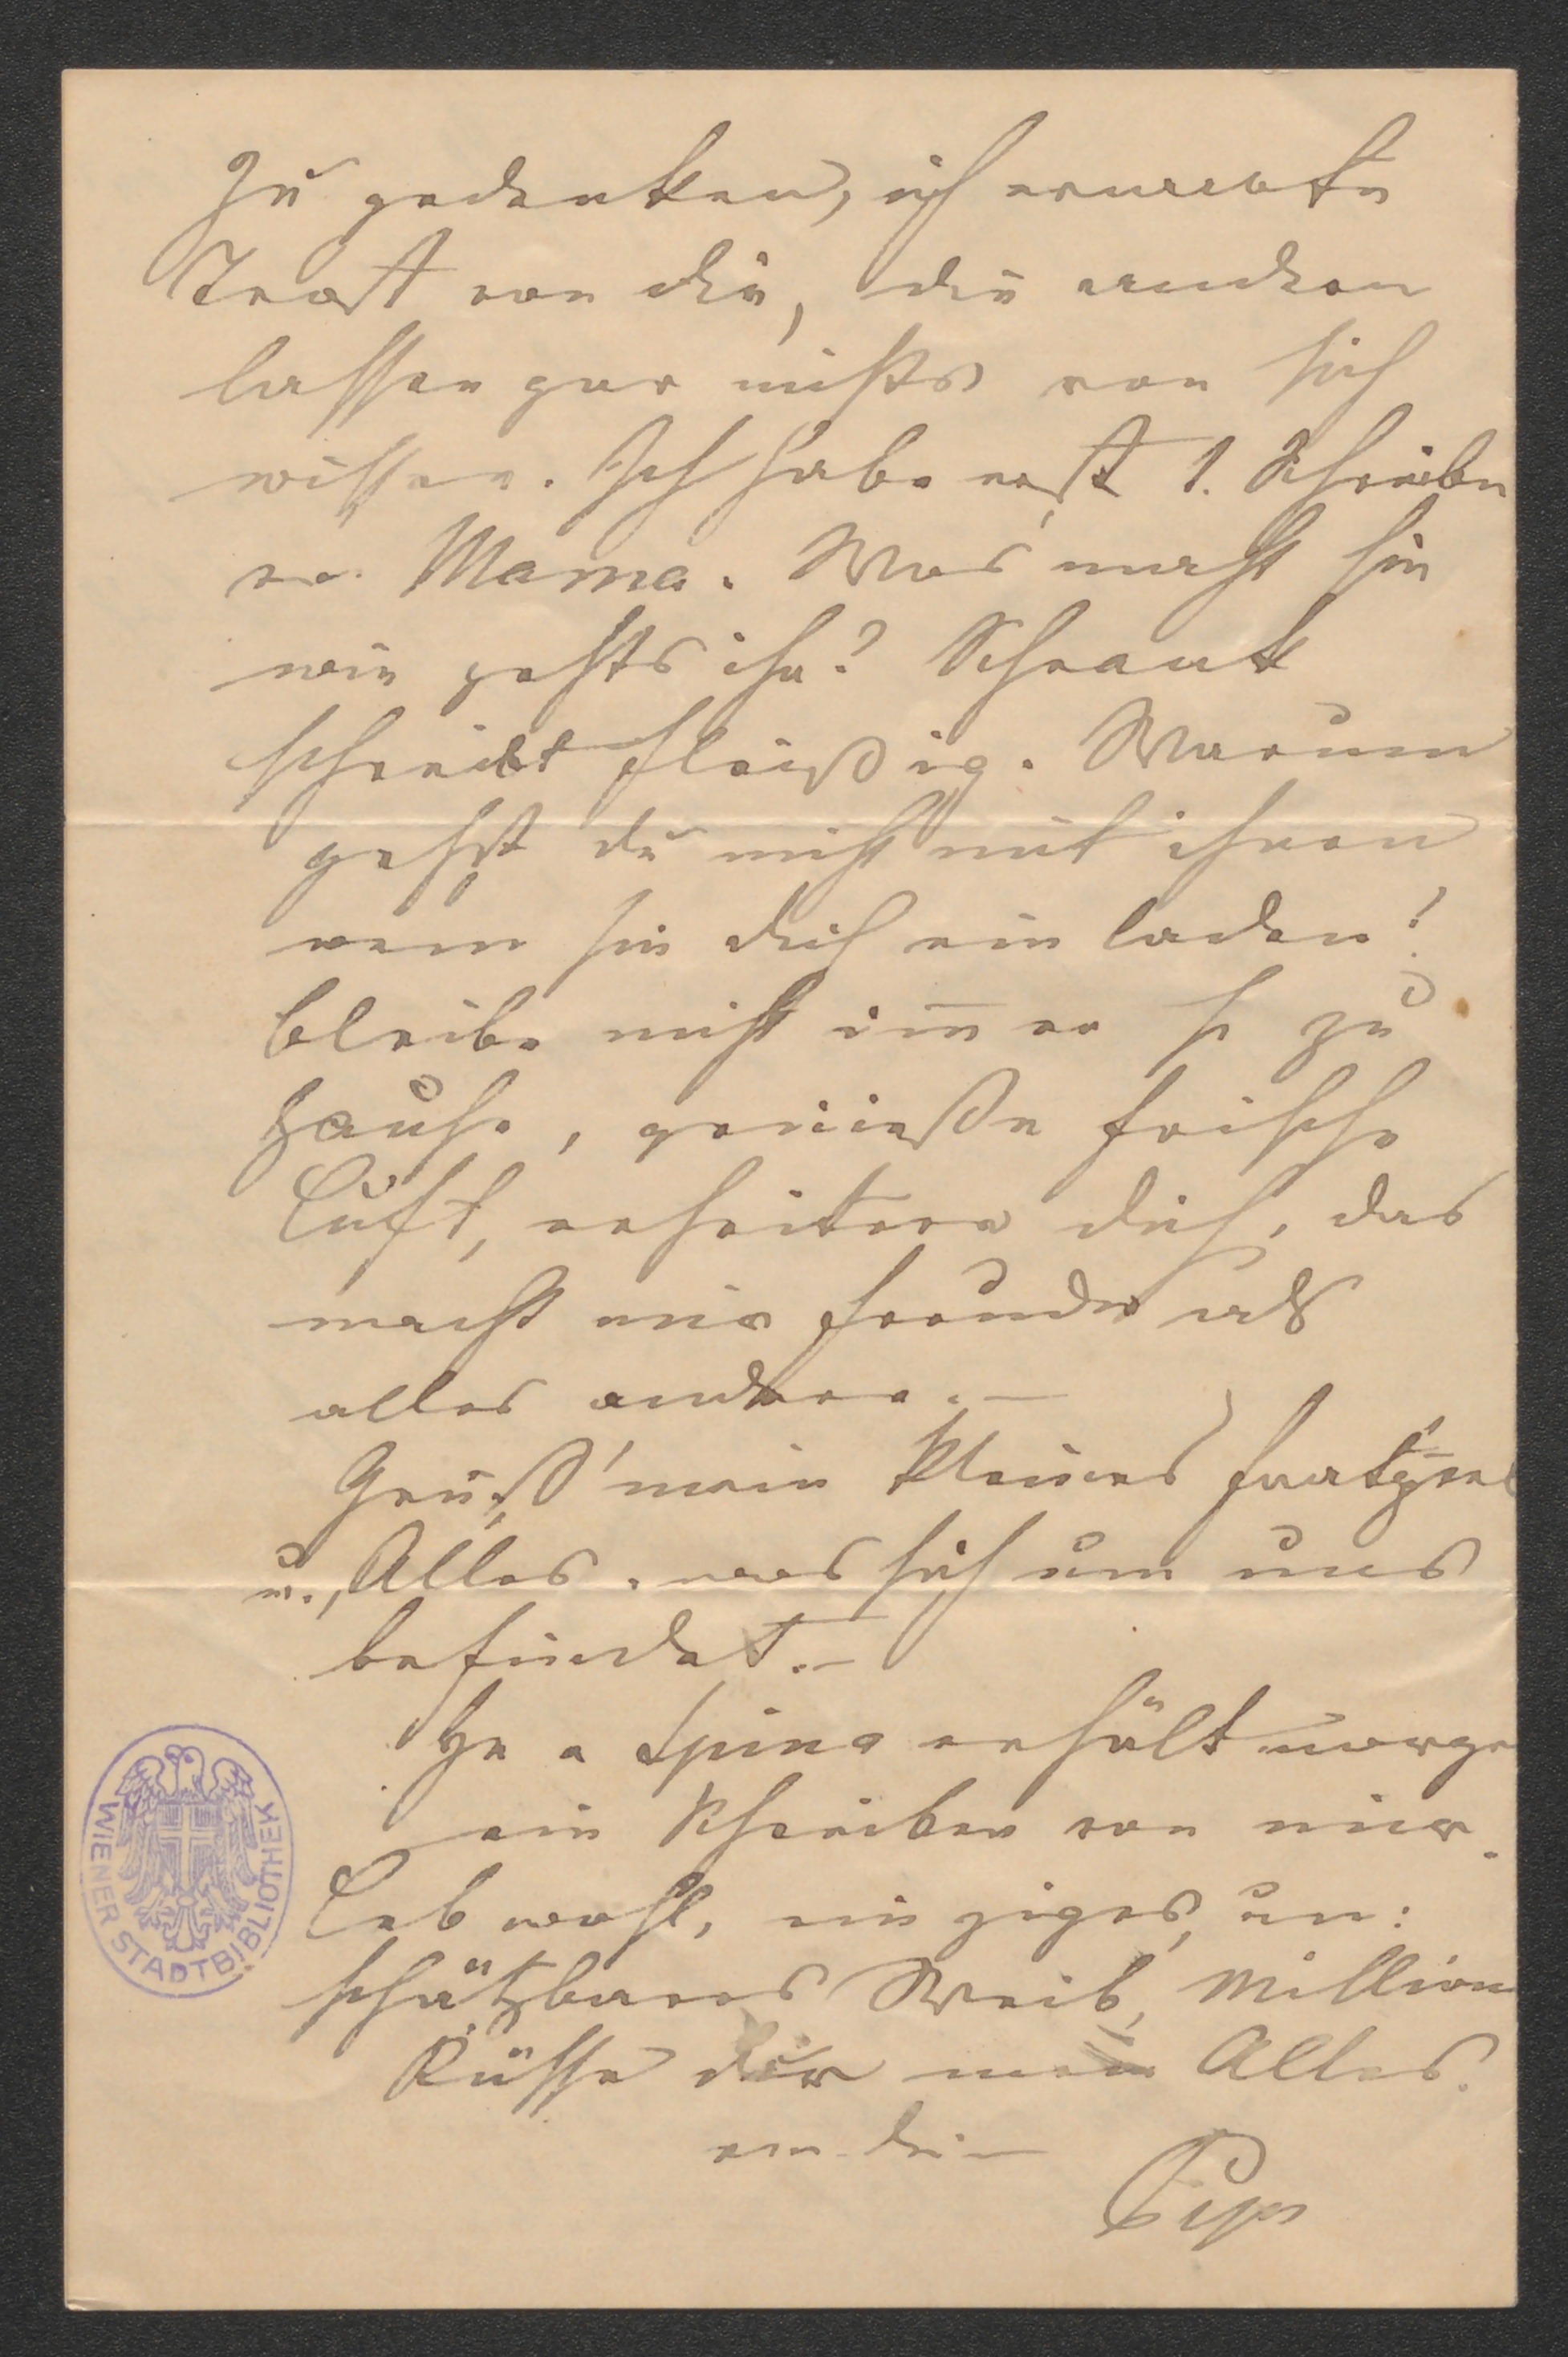 Zu gedenken, ich erwarte
Trost von dir, die andern
lassen gar nichts von sich
wissen. Ich habe erst 1. Schreiben
v. Mama. Was macht sie
wie gehts ihr? Schrank
schreibt fleißig. Warum
gehst du nicht mit ihnen
wenn sie dich ein laden!
bleibe nicht im̅er so zu
Hause, genieße frische
Luft, erheitere dich, das
macht mir Freude als
alles andere. —
Grüß' mein kleines
u., Alles, was sich um uns
befindet. —
Hr. Spina erhält morgen
ein Schreiben von mir.
Leb wohl, einziges, un:
schätzbares Weib, Million
Küsse dir mein Alles.
von dein
WIENER STADTBIBLIOTHEK